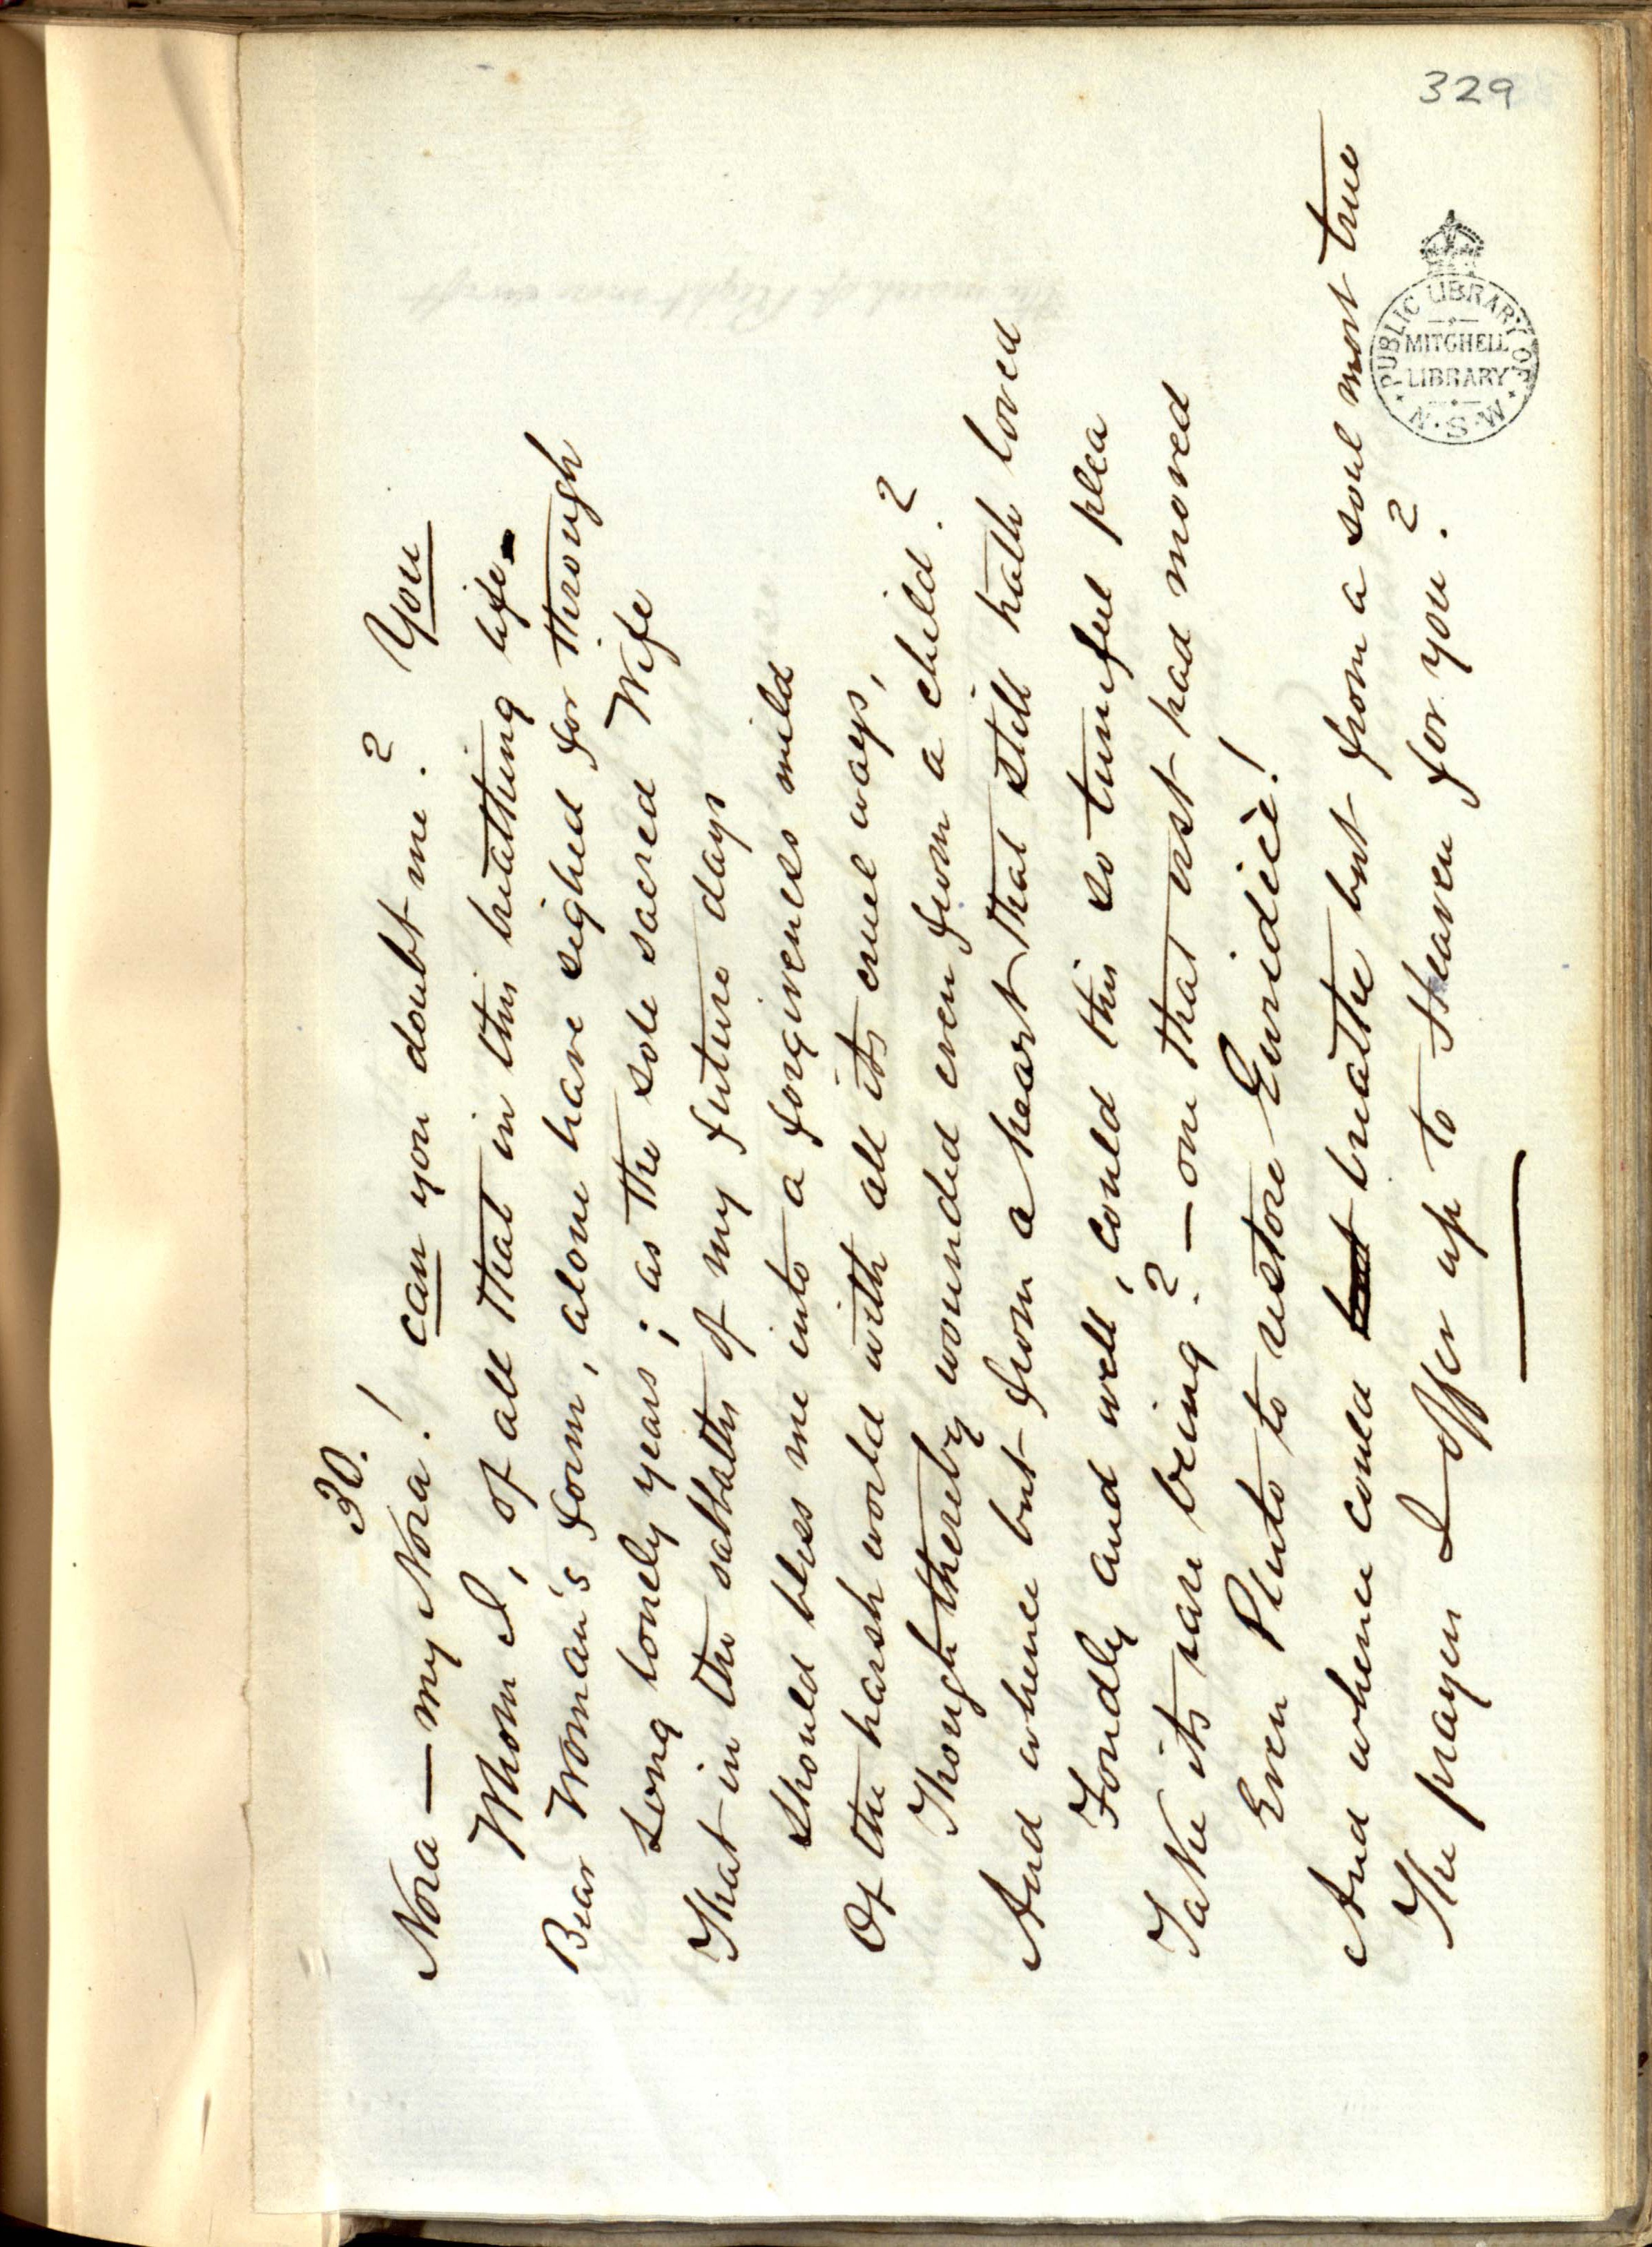 329
30.
Nora — my Nora! can you doubt me? You
Whom I, of all that in this breathing life
Bear Woman's form, alone have sighed for through
Long lonely years; as the sole sacred Wife
That in the sabbaths of my future days
Should bless me into a forgiveness mild
Of the harsh world with all its cruel ways,
Though thereby wounded even from a child?
And whence but from a heart that still hath loved
Fondly and well, could this so tuneful plea
Take its rare being? — one that erst had moved
Even Pluto to restore Euridicè!
And whence could but breathe but from a soul most true
The prayer I offer up to Heaven for you?
PUBLIC LIBRARY OF N.S.W.
MITCHELL
LIBRARY